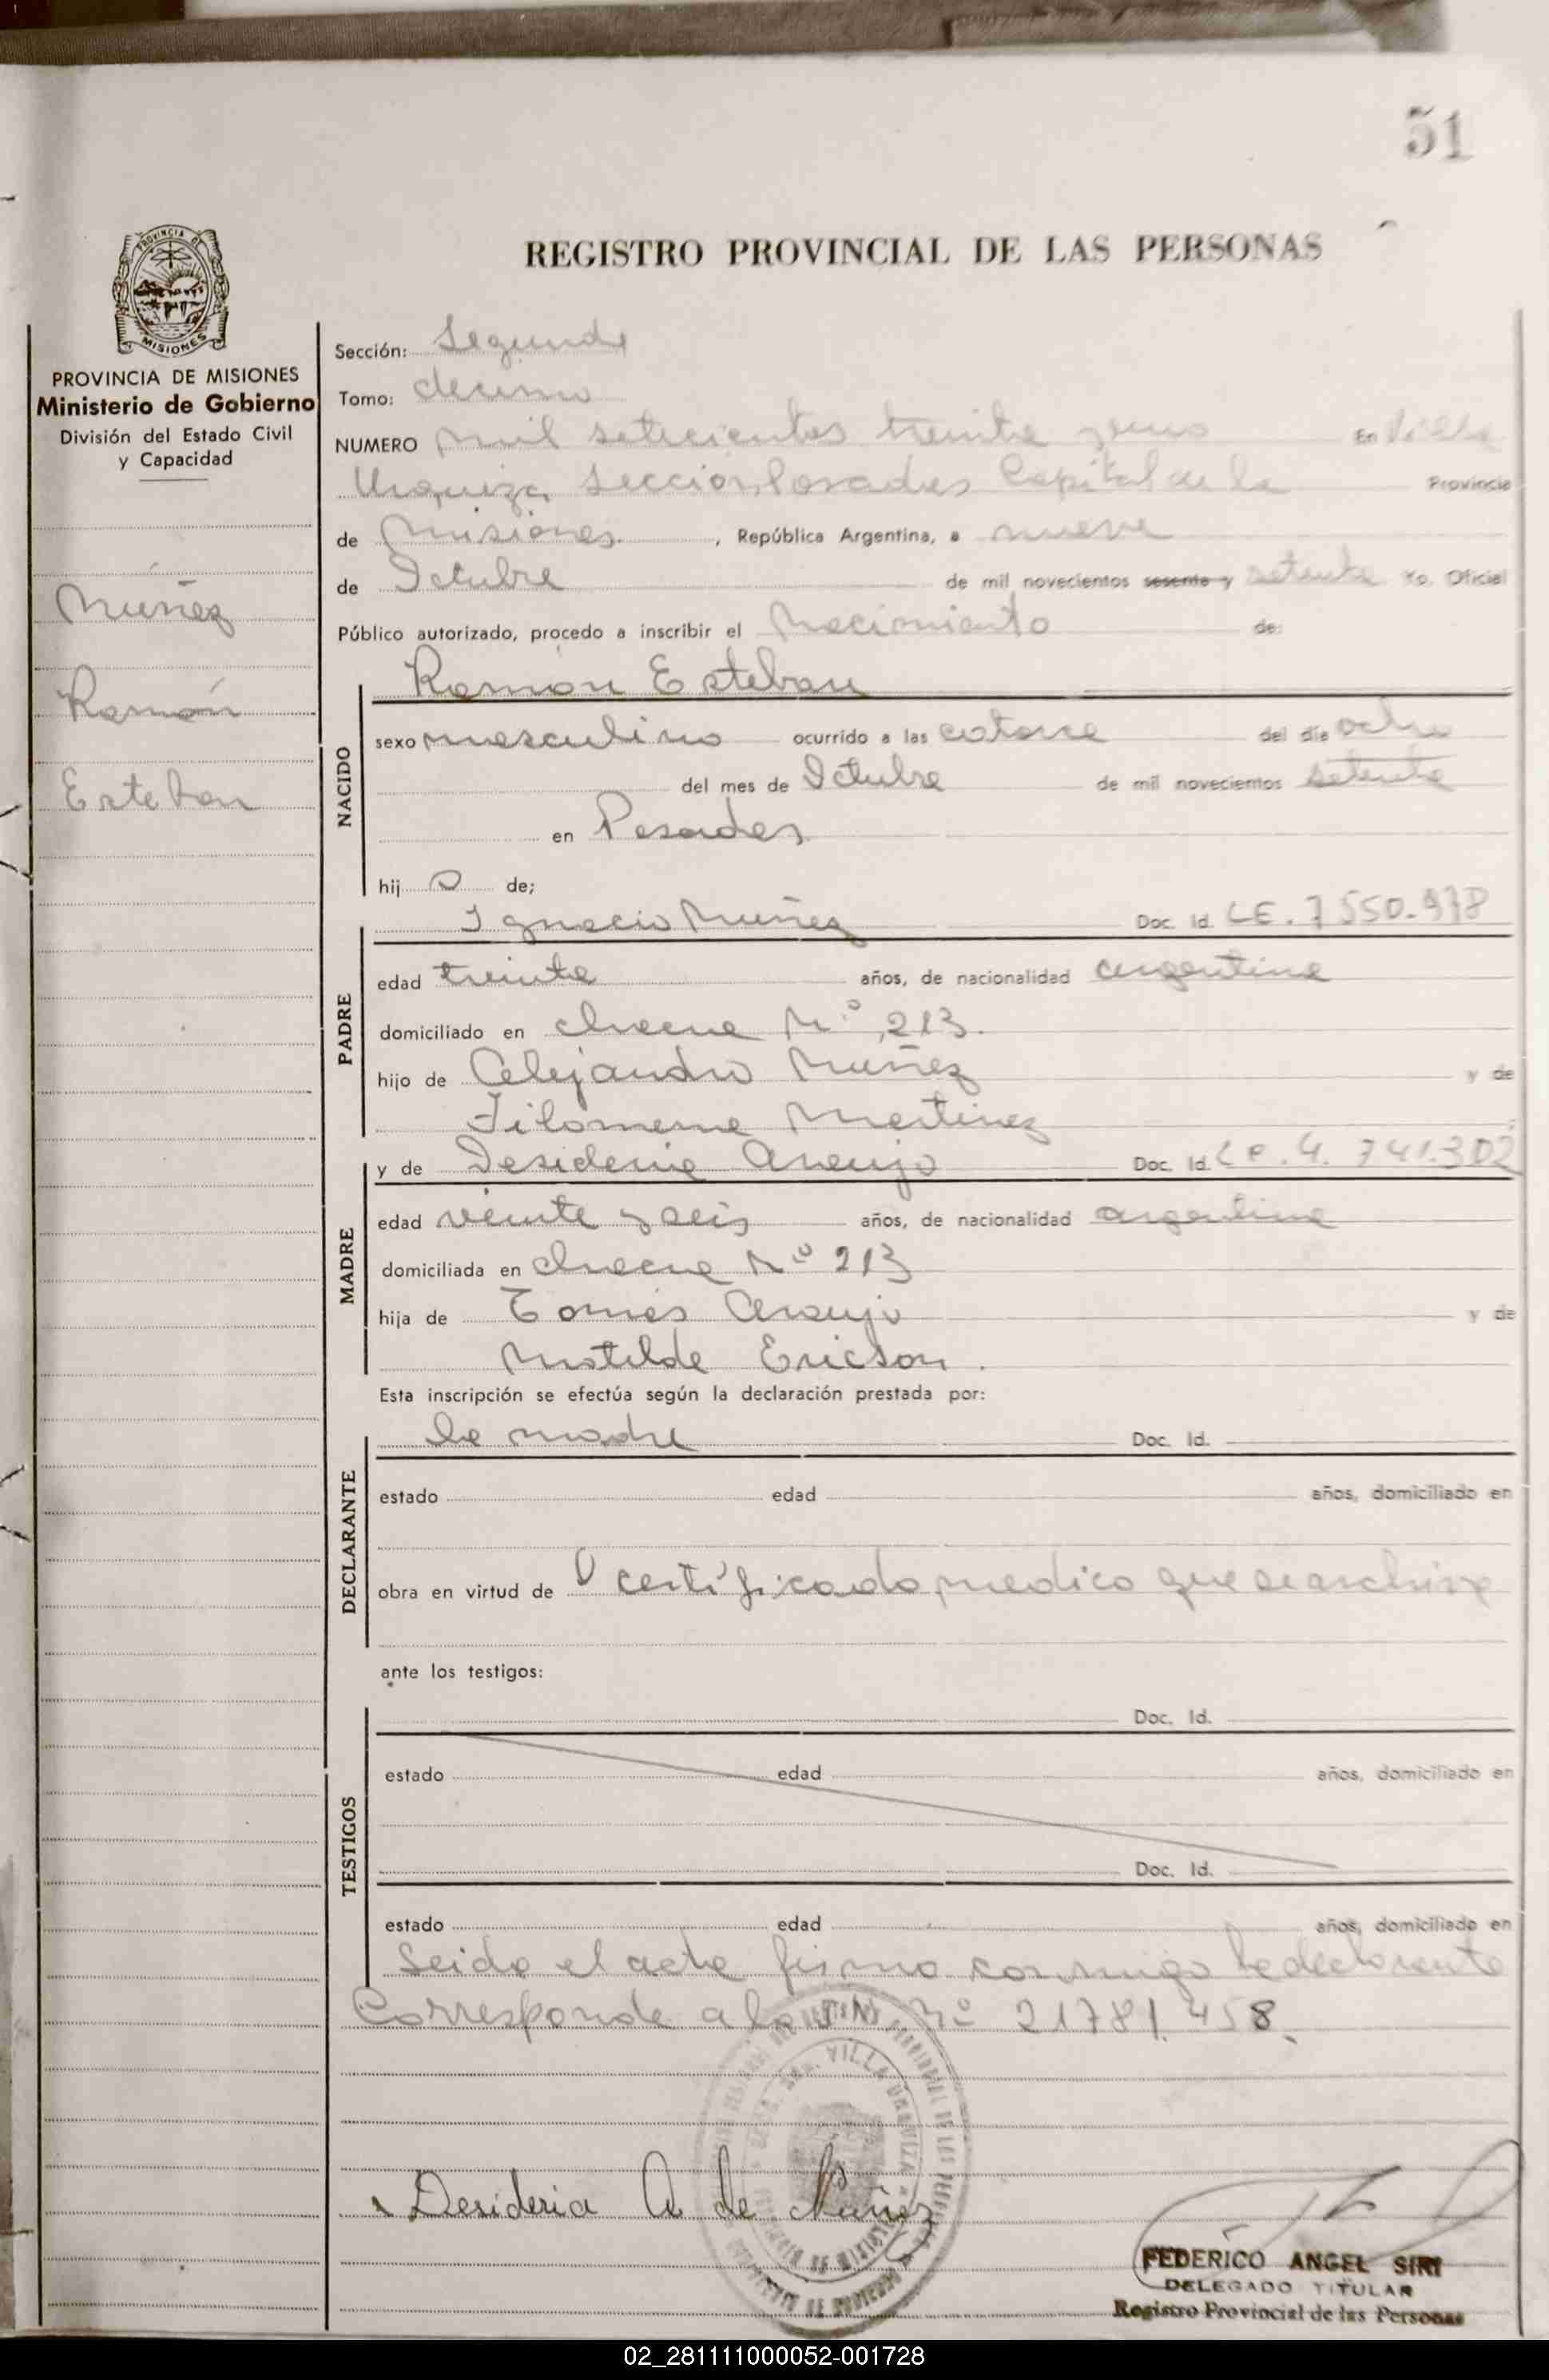 51
REGISTRO PROVINCIAL DE LAS PERSONAS
PROVINCIA DE MISIONES
PROVINCIA DE MISIONES
Ministerio de Gobierno
División del Estado Civil
y Capacidad
Núñez
Ramón
Esteban
Sección: Segunda
Tomo: decimo
NUMERO mil setecientos treinta y uno En Villa
Urquiza, Sección Posadas Capital de la Provincia
de Misiones , República Argentina, a nueve
de Octubre de mil novecientos sesenta y setenta Yo. Oficial
Público autorizado, procedo a inscribir el Nacimiento de:
Ramón Esteban
NACIDO
sexo masculino ocurrido a las catorce del día ocho
del mes de Octubre de mil novecientos setenta
en Posadas
hijo de;
Ignacio Nuñez Doc. Id. LE. 7550.978
PADRE
edad treinta años, de nacionalidad argentina
domiciliado en chacra Nº 213.
hijo de Alejandro Nuñez y de
Filomena Martinez
y de Desideria Araujo Doc. Id. LC. 4.741.302
MADRE
edad veinte y seis años, de nacionalidad argentina
domiciliada en chacra Nº 213
hija de Tomás Araujo y de
Matilde Ericson.
Esta inscripción se efectúa según la declaración prestada por:
la madre Doc. Id.
DECLARANTE
estado edad años, domiciliado en
obra en virtud de certificado medico que se archiva
ante los testigos:
Doc. Id.
TESTIGOS
estado edad años, domiciliado en
Doc. Id.
estado edad años, domiciliado en
Leida el acta firma conmigo la declarante
Corresponde a la Nº 21781.458.
VILLA URQUIZA
Desideria A de Nuñez
FEDERICO ANGEL SIRI
DELEGADO TITULAR
Registro Provincial de las Personas
02_281111000052-001728